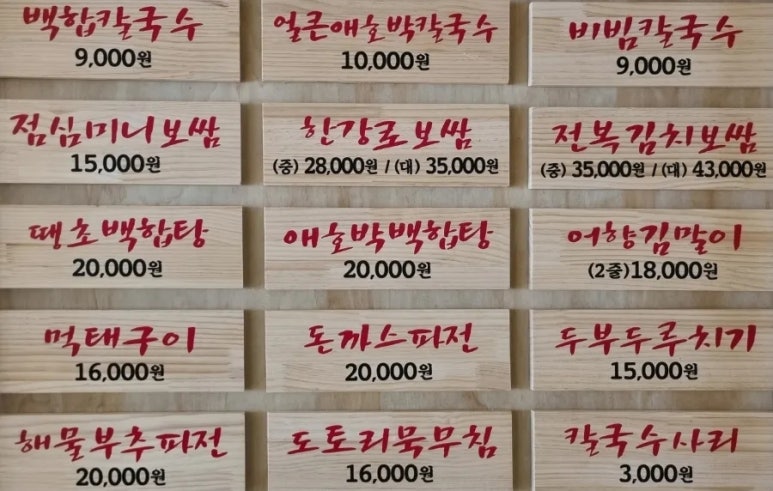 백합칼국수
9,000원
얼큰애호박칼국수
10,000원
비빔칼국수
9,000원
점심미니보쌈
15,000원
한강로보쌈
(중) 28,000원 / (대) 35,000원
전복김치보쌈
(중) 35,000원 / (대) 43,000원
땡초백합탕
20,000원
애호박백합탕
20,000원
어향김말이
(2줄)18,000원
먹태구이
16,000원
돈까스파전
20,000원
두부두루치기
15,000원
해물부추파전
20,000원
도토리묵무침
16,000원
칼국수사리
3,000원